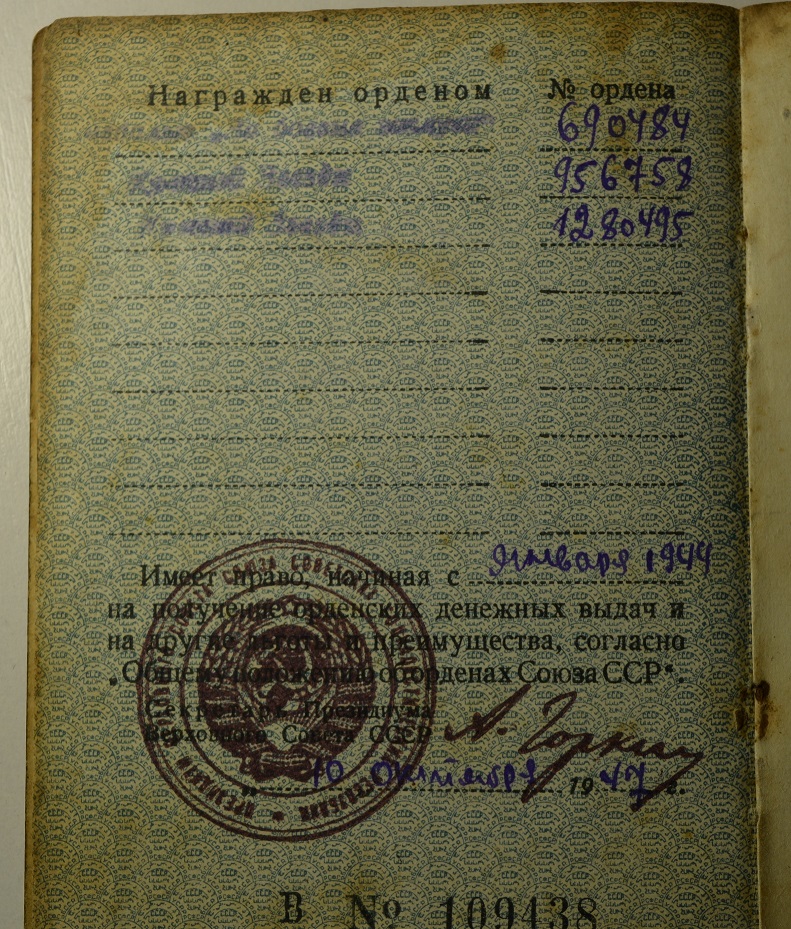 Награжден орденом № ордена
690484
Красной Звезды 956758
Красной Звезды 1280495
Имеет право, начиная с января 1944
на получение орденских денежных выдач и
на другие льготы и преимущества, согласно
„Общему положению об орденах Союза ССР“.
Секретарь Президиума
Верховного Совета СССР А. Горкин
„ 10 октября 1947 г.
В № 109438